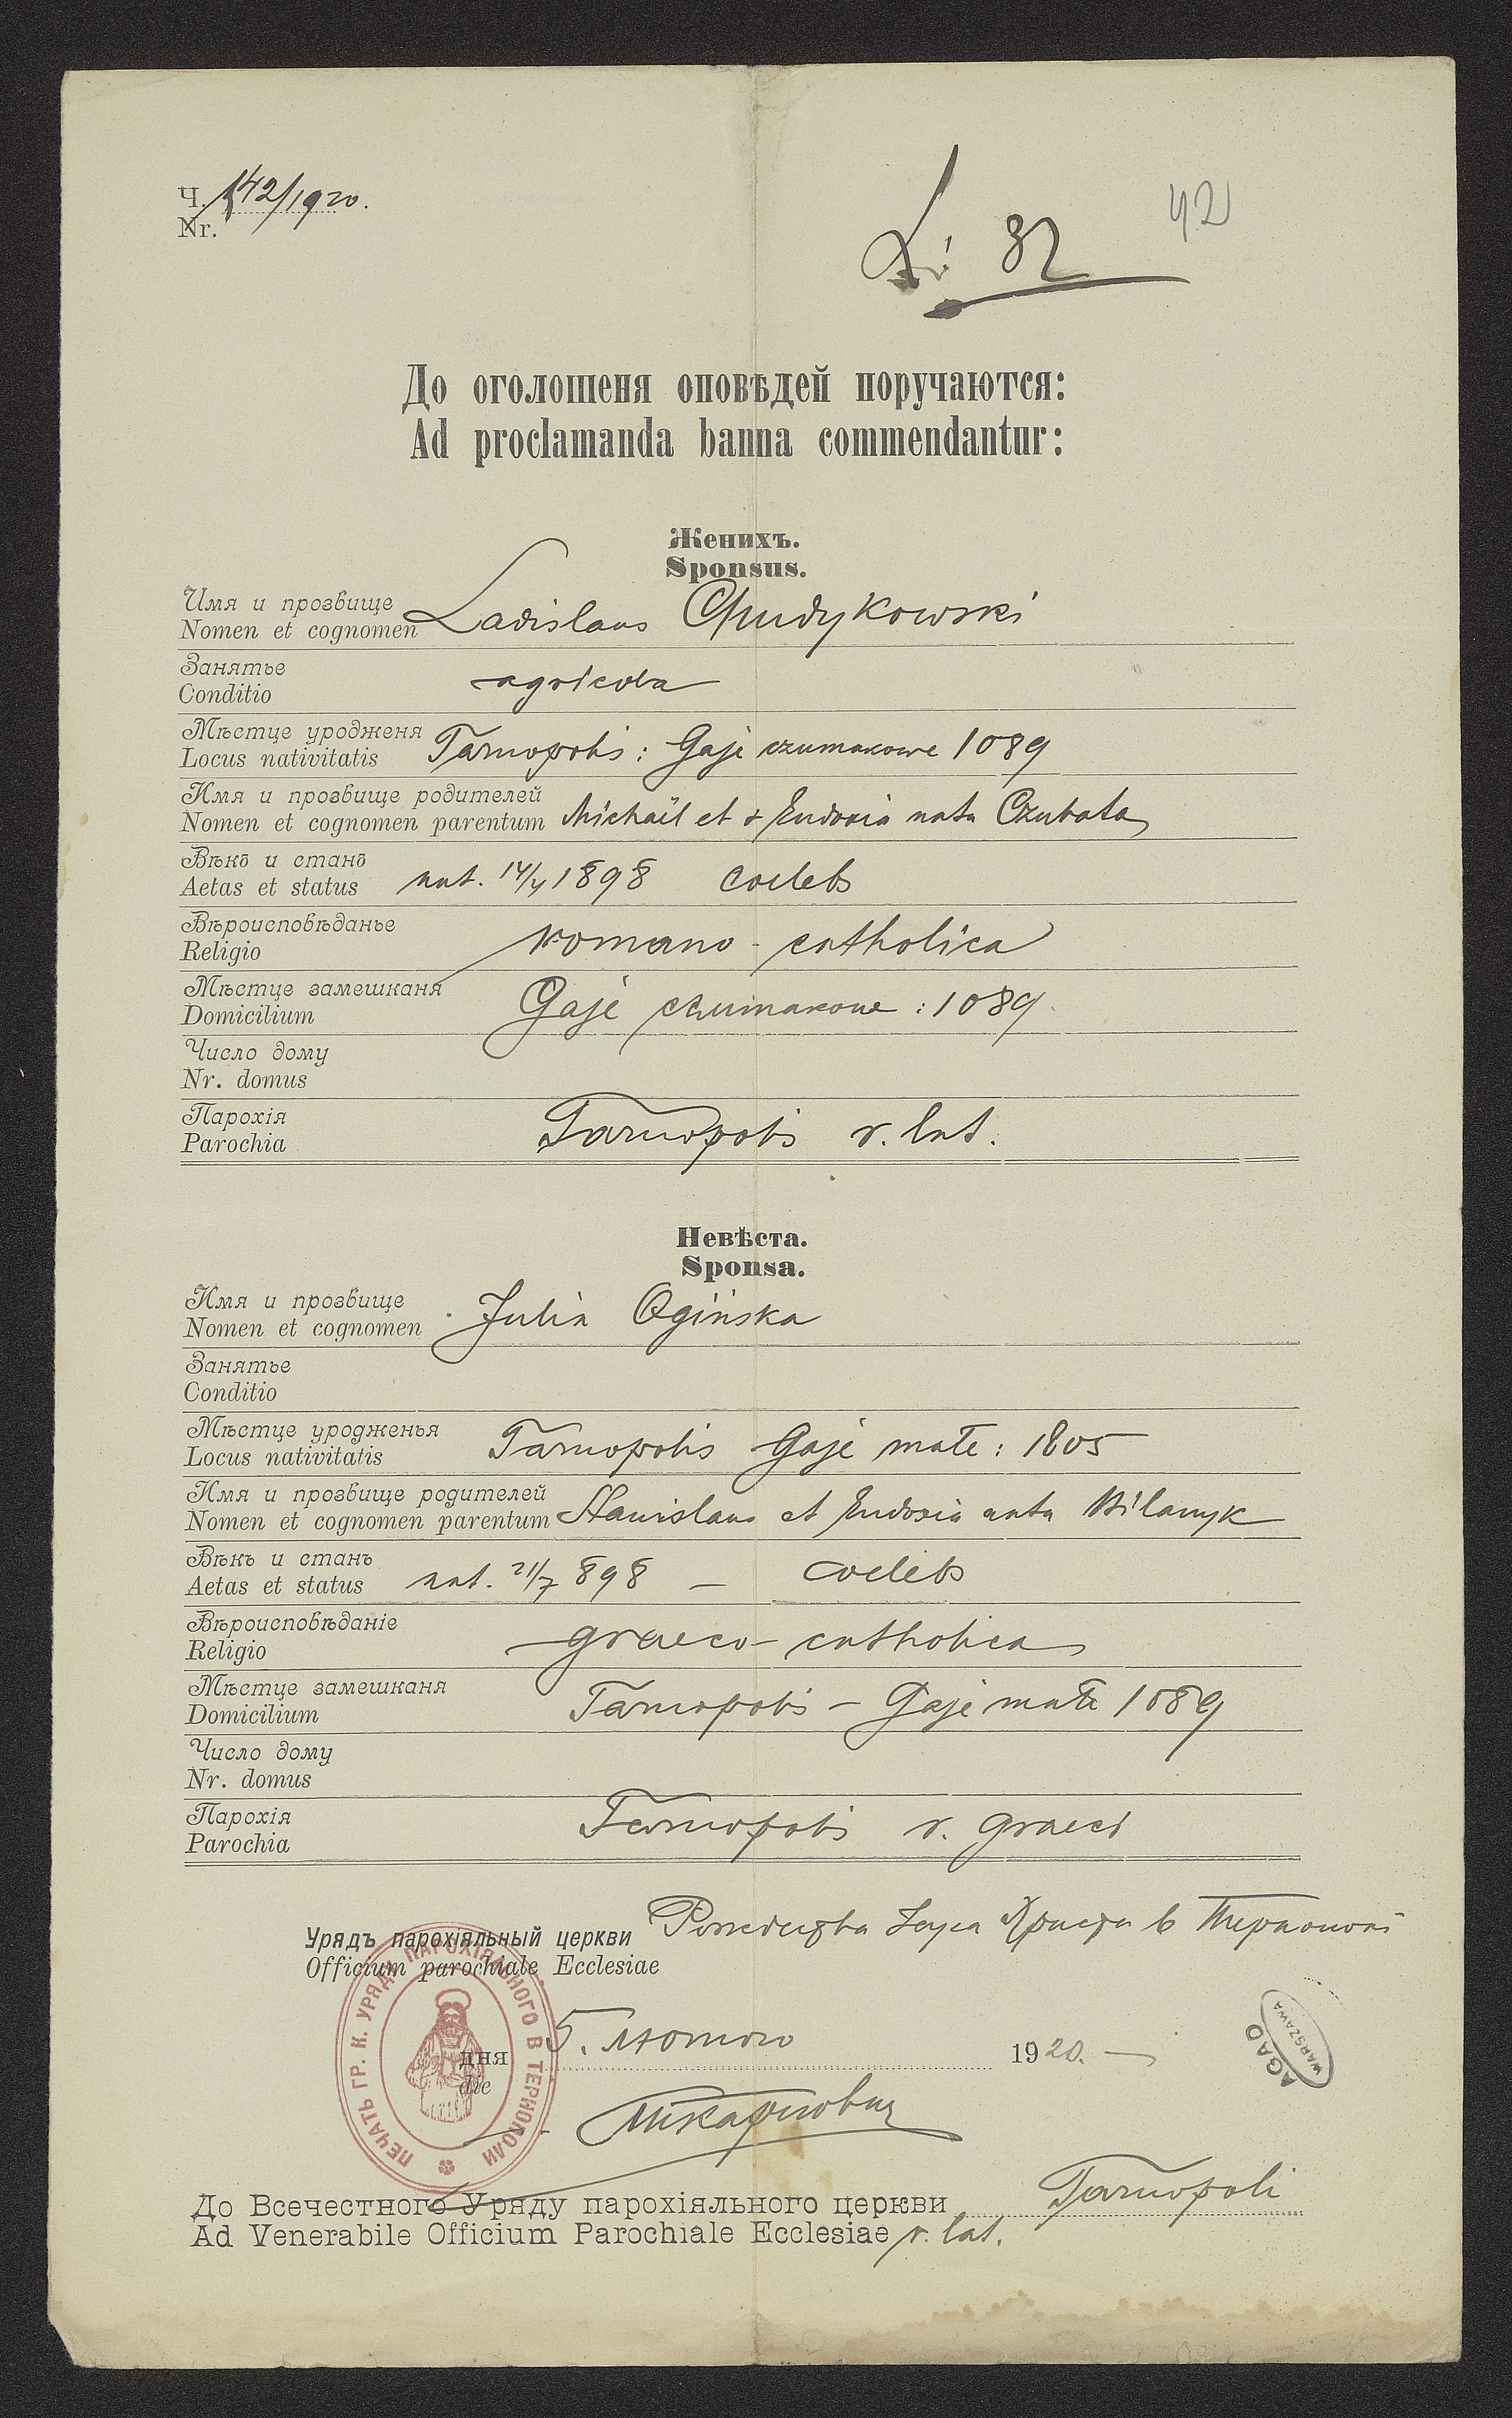 Ч. 142/1920.
Nr.
L: 82
42
До оголошеня оповѣдей поручаются:
Ad proclamanda banna commendantur:
Женихъ.
Sponsus.
Имя и прозвище
Nomen et cognomen Ladislaus Chudykowski
Занятье
Conditio agricola
Мѣстце уродженя
Locus nativitatis Tarnopolis: Gaje czumakowe 1089
Имя и прозвище родителей
Nomen et cognomen parentum Michaël et Eudoxia nata Czubata
Вѣкъ и станъ
Aetas et status nat. 14/4 1898 coelebs
Вѣроисповѣданье
Religio romano-catholica
Мѣстце замешканя
Domicilium Gaje czumakowe: 1089.
Число дому
Nr. domus
Парохія
Parochia Tarnopolis r. lat.
Невѣста.
Sponsa.
Имя и прозвище
Nomen et cognomen Julia Ogińska
Занятье
Conditio
Мѣстце уродженья
Locus nativitatis Tarnopolis Gaje małe: 1805
Имя и прозвище родителей
Nomen et cognomen parentum Stanislaus et Eudoxia nata
Вѣкъ и станъ
Aetas et status nat. 21/7 898 – coelebs
Вѣроисповѣданіе
Religio graeco-catholica
Мѣстце замешканя
Domicilium Tarnopolis – Gaje małe 1089
Число дому
Nr. domus
Парохія
Parochia Tarnopolis r. graeci
Урядъ парохіяльный церкви Рождества Ісуса Христа в Тернополі
Officium parochiale Ecclesiae
ПЕЧАТЬ ГР. К. УРЯДУ ПАРОХІЯЛЬНОГО В ТЕРНОПОЛИ
дня 5. лютого 1920. –
die
AGAD
WARSZAWA
До Всечестного Уряду парохіяльного церкви Tarnopoli
Ad Venerabile Officium Parochiale Ecclesiae r. lat.